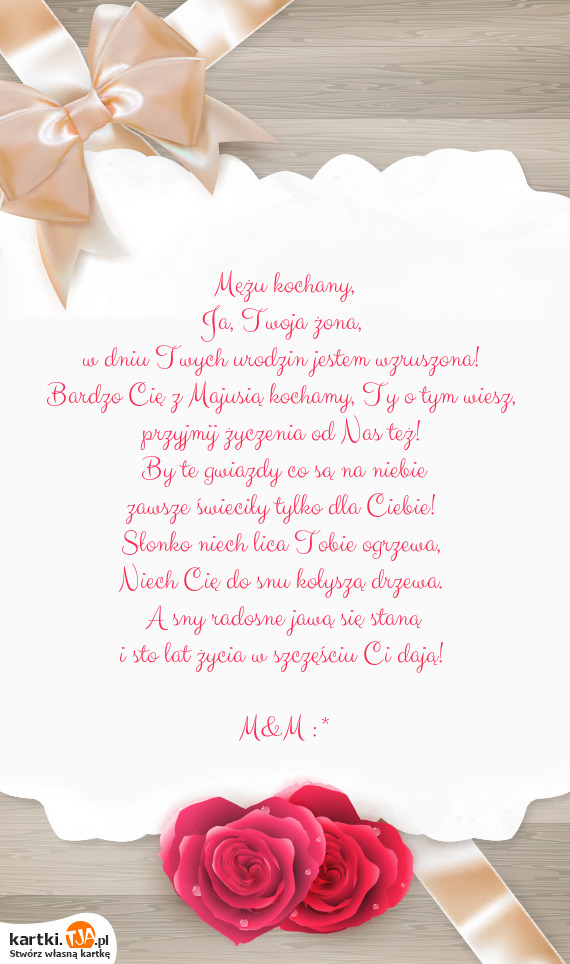 Mężu kochany,
Ja, Twoja żona,
w dniu Twych urodzin jestem wzruszona!
Bardzo Cię z Majusią kochamy, Ty o tym wiesz,
przyjmij życzenia od Nas też!
By te gwiazdy co są na niebie
zawsze świeciły tylko dla Ciebie!
Słonko niech lica Tobie ogrzewa,
Niech Cię do snu kołyszą drzewa.
A sny radosne jawą się staną
i sto lat życia w szczęściu Ci dają!
M&M :*
kartki.TJA.pl
Stwórz własną kartkę